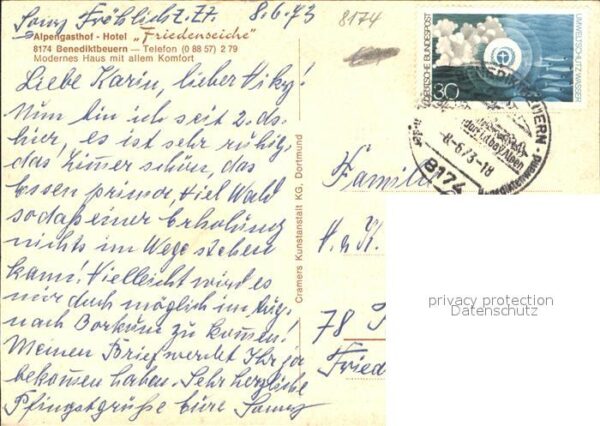 Sonny Fröhlich z. Zt. 8.6.73
8174
Alpengasthof - Hotel „Friedenseiche"
8174 Benediktbeuern — Telefon (0 88 57) 2 79
Modernes Haus mit allem Komfort
Liebe Karin, lieber Hiky!
Nun bin ich seit 2. ds.
hier, es ist sehr ruhig,
das Zimmer schön, das
Essen prima, viel Wald
sodaß einer Erholung
nichts im Wege stehen
kann! Vielleicht wird es
mir doch möglich im Aug.
nach Borkum zu kommen!
Meinen Brief werdet Ihr ja
bekommen haben. Sehr herzliche
Pfingstgrüße Eure Sonny
Cramers Kunstanstalt KG, Dortmund
DEUTSCHE BUNDESPOST
30
UMWELTSCHUTZ WASSER
-8.-6.73-18
8174
Benediktenwand
Familie
H. u. K.
78
Fried
privacy protection
Datenschutz